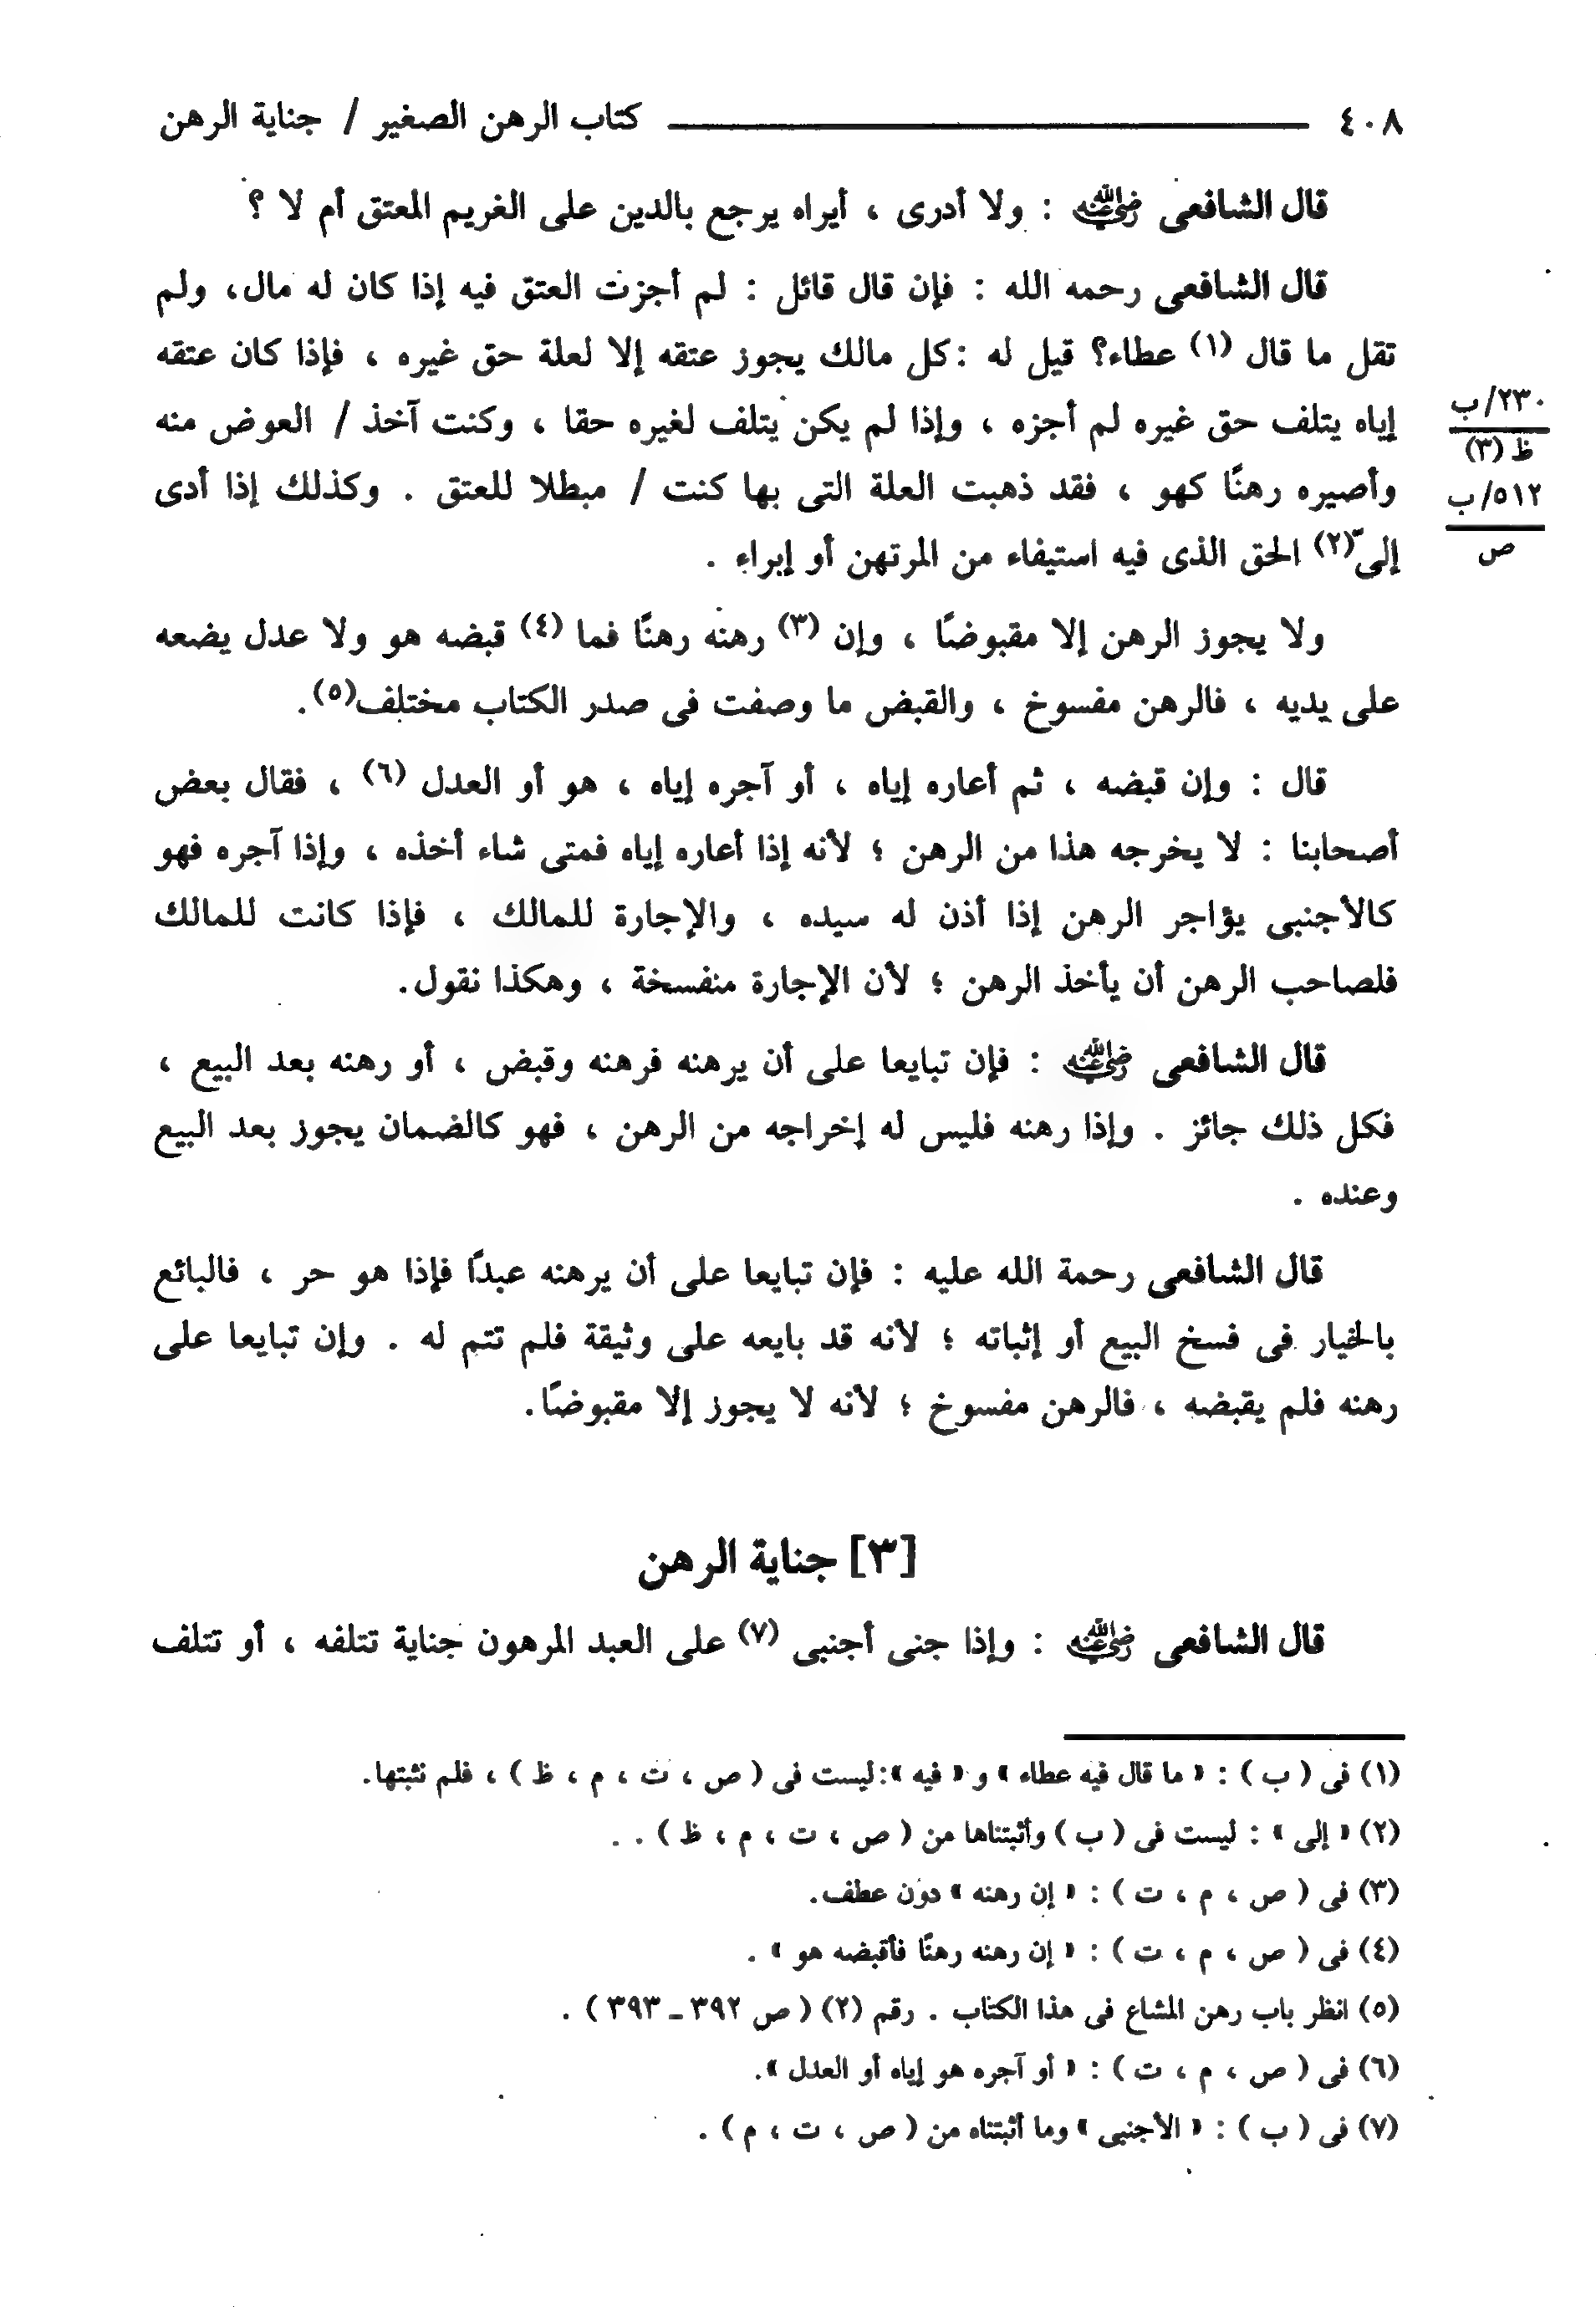 ٤٠٨ كتاب الرهن الصغير / جناية الرهن
قال الشافعى رضي الله عنه : ولا أدرى ، أيراه يرجع بالدين على الغريم المعتق أم لا ؟
قال الشافعى رحمه الله : فإن قال قائل : لم أجزت العتق فيه إذا كان له مال، ولم
تقل ما قال (١) عطاء؟ قيل له :كل مالك يجوز عتقه إلا لعلة حق غيره ، فإذا كان عتقه
إياه يتلف حق غيره لم أجزه ، وإذا لم يكن يتلف لغيره حقا ، وكنت آخذ / العوض منه
وأصيره رهنًا كهو ، فقد ذهبت العلة التى بها كنت / مبطلا للعتق . وكذلك إذا أدى
إلىّ(٢) الحق الذى فيه استيفاء من المرتهن أو إبراء .
٢٣٠/ب
ظ (٣)
٥١٢/ب
ص
ولا يجوز الرهن إلا مقبوضًا ، وإن (٣) رهنه رهنًا فما (٤) قبضه هو ولا عدل يضعه
على يديه ، فالرهن مفسوخ ، والقبض ما وصفت فى صدر الكتاب مختلف(٥).
قال : وإن قبضه ، ثم أعاره إياه ، أو آجره إياه ، هو أو العدل (٦) ، فقال بعض
أصحابنا : لا يخرجه هذا من الرهن ؛ لأنه إذا أعاره إياه فمتى شاء أخذه ، وإذا آجره فهو
كالأجنبى يؤاجر الرهن إذا أذن له سيده ، والإجارة للمالك ، فإذا كانت للمالك
فلصاحب الرهن أن يأخذ الرهن ؛ لأن الإجارة منفسخة ، وهكذا نقول.
قال الشافعى رضي الله عنه : فإن تبايعا على أن يرهنه فرهنه وقبض ، أو رهنه بعد البيع ،
فكل ذلك جائز . وإذا رهنه فليس له إخراجه من الرهن ، فهو كالضمان يجوز بعد البيع
وعنده .
قال الشافعى رحمة الله عليه : فإن تبايعا على أن يرهنه عبدًا فإذا هو حر ، فالبائع
بالخيار فى فسخ البيع أو إثباته ؛ لأنه قد بايعه على وثيقة فلم تتم له . وإن تبايعا على
رهنه فلم يقبضه ، فالرهن مفسوخ ؛ لأنه لا يجوز إلا مقبوضًا.
[٣] جناية الرهن
قال الشافعى رضي الله عنه : وإذا جنى أجنبى (٧) على العبد المرهون جناية تتلفه ، أو تتلف
(١) فى ( ب ) : « ما قال فيه عطاء » و « فيه »:ليست فى ( ص ، ت ، م ، ظ ) ، فلم نثبتها.
(٢) « إلى » : ليست فى ( ب ) وأثبتناها من ( ص ، ت ، م ، ظ ) .
(٣) فى ( ص ، م ، ت ) : « إن رهنه » دون عطف.
(٤) فى ( ص ، م ، ت ) : « إن رهنه رهنًا فأقبضه هو » .
(٥) انظر باب رهن المشاع فى هذا الكتاب . رقم (٢) ( ص ٣٩٢ ـ ٣٩٣ ) .
(٦) فى ( ص ، م ، ت ) : « أو آجره هو إياه أو العدل ».
(٧) فى ( ب ) : « الأجنبى » وما أثبتناه من ( ص ، ت ، م ) .